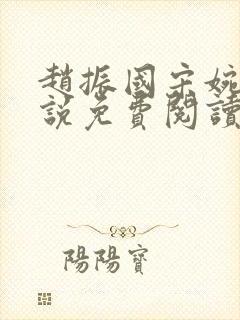 趙振國宋婉
說免費閱讀
陽陽寶